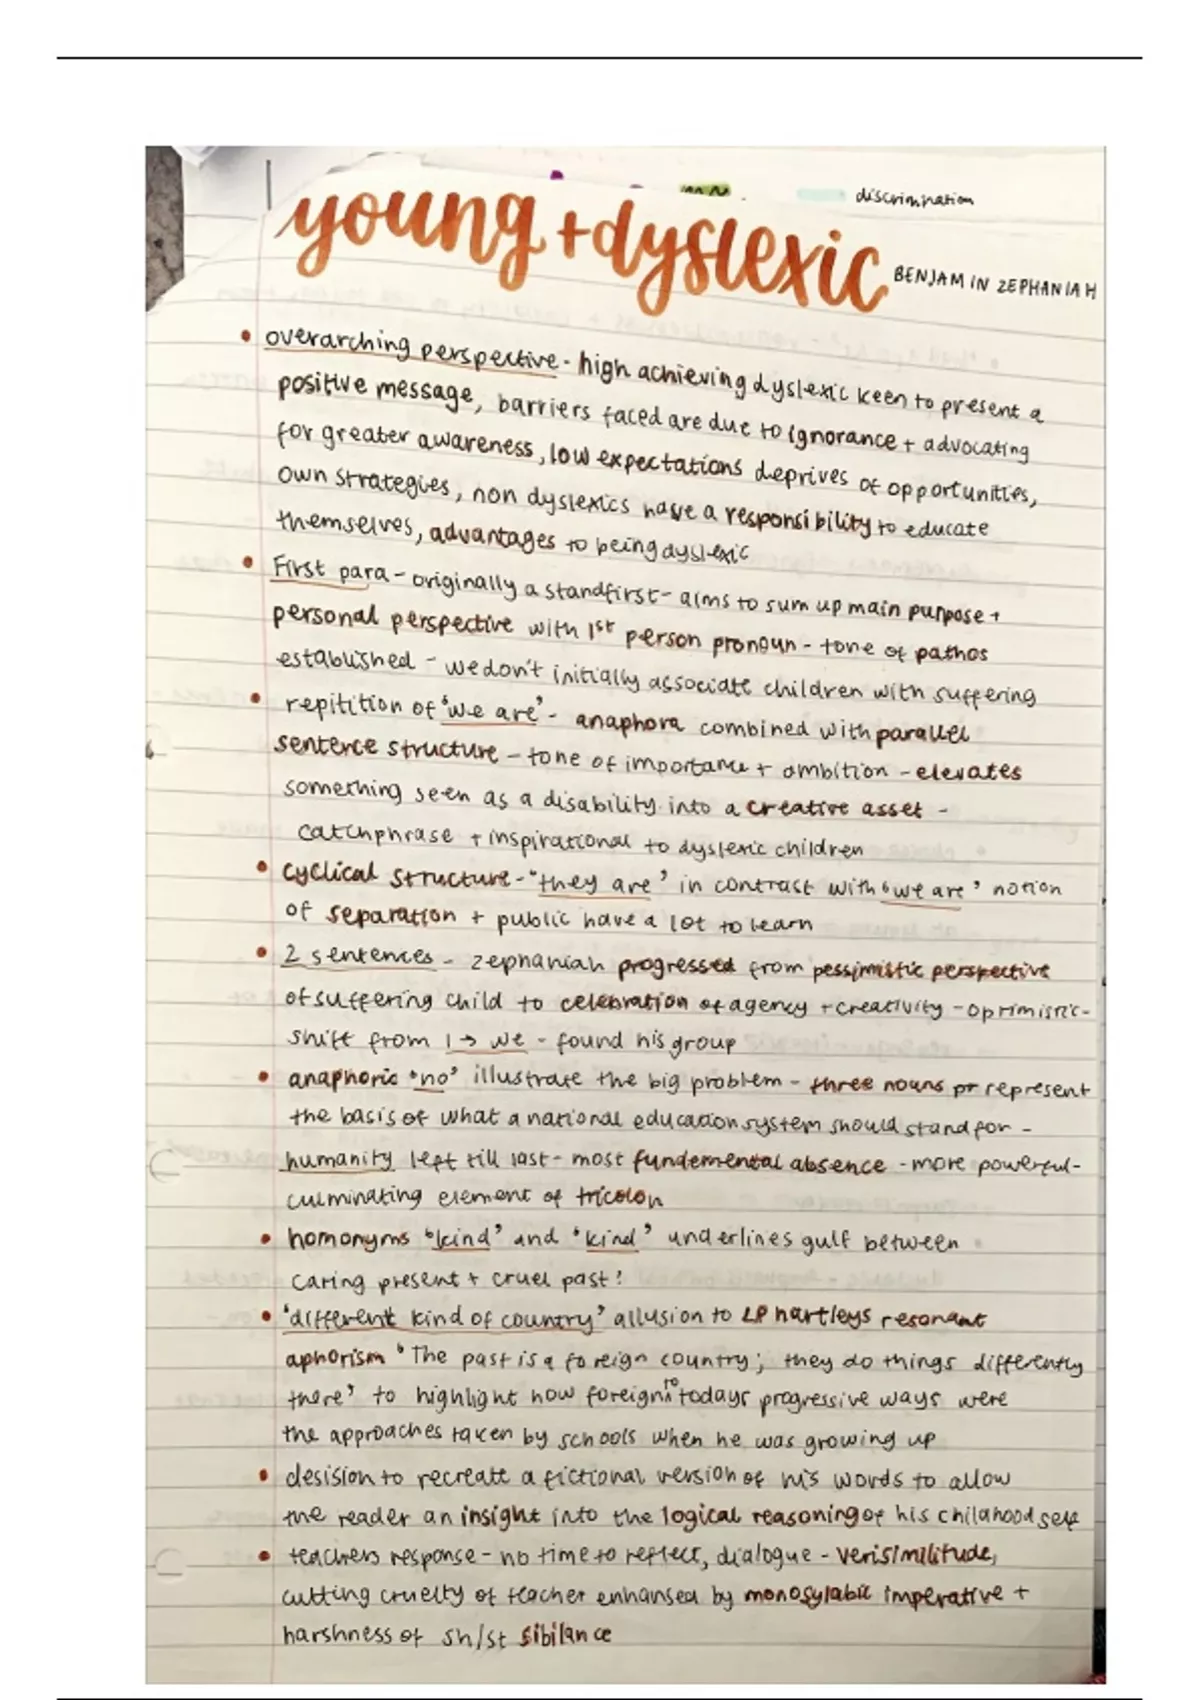 discrimination
young + dyslexic
BENJAMIN ZEPHANIAH
• overarching perspective - high achieving dyslexic keen to present a
positive message, barriers faced are due to ignorance + advocating
for greater awareness, low expectations deprives of opportunities,
own strategies, non dyslexics have a responsibility to educate
themselves, advantages to being dyslexic
• First para - originally a standfirst - aims to sum up main purpose +
personal perspective with 1st person pronoun - tone of pathos
established - we don't initially associate children with suffering
• repitition of 'we are' - anaphora combined with parallel
sentence structure - tone of importance + ambition - elevates
something seen as a disability into a creative asset -
catchphrase + inspirational to dyslexic children
• cyclical structure - "they are' in contrast with 'we are' notion
of separation + public have a lot to learn
• 2 sentences - zephaniah progressed from pessimistic perspective
of suffering child to celebration of agency + creativity - optimistic -
shift from I → we - found his group
• anaphoric 'no' illustrate the big problem - three nouns pr represent
the basis of what a national education system should stand for -
humanity left till last - most fundemental absence - more powerful -
culminating element of tricolon
• homonyms 'kind' and 'kind' underlines gulf between
caring present + cruel past!
• 'different kind of country' allusion to LP hartleys resonant
aphorism 'The past is a foreign country; they do things differently
there' to highlight how foreign to todays progressive ways were
the approaches taken by schools when he was growing up
• desision to recreate a fictional version of his words to allow
the reader an insight into the logical reasoning of his childhood self
• teachers response - no time to reflect, dialogue - verisimilitude,
cutting cruelty of teacher enhansed by monosylabic imperative +
harshness of sh/st sibilance